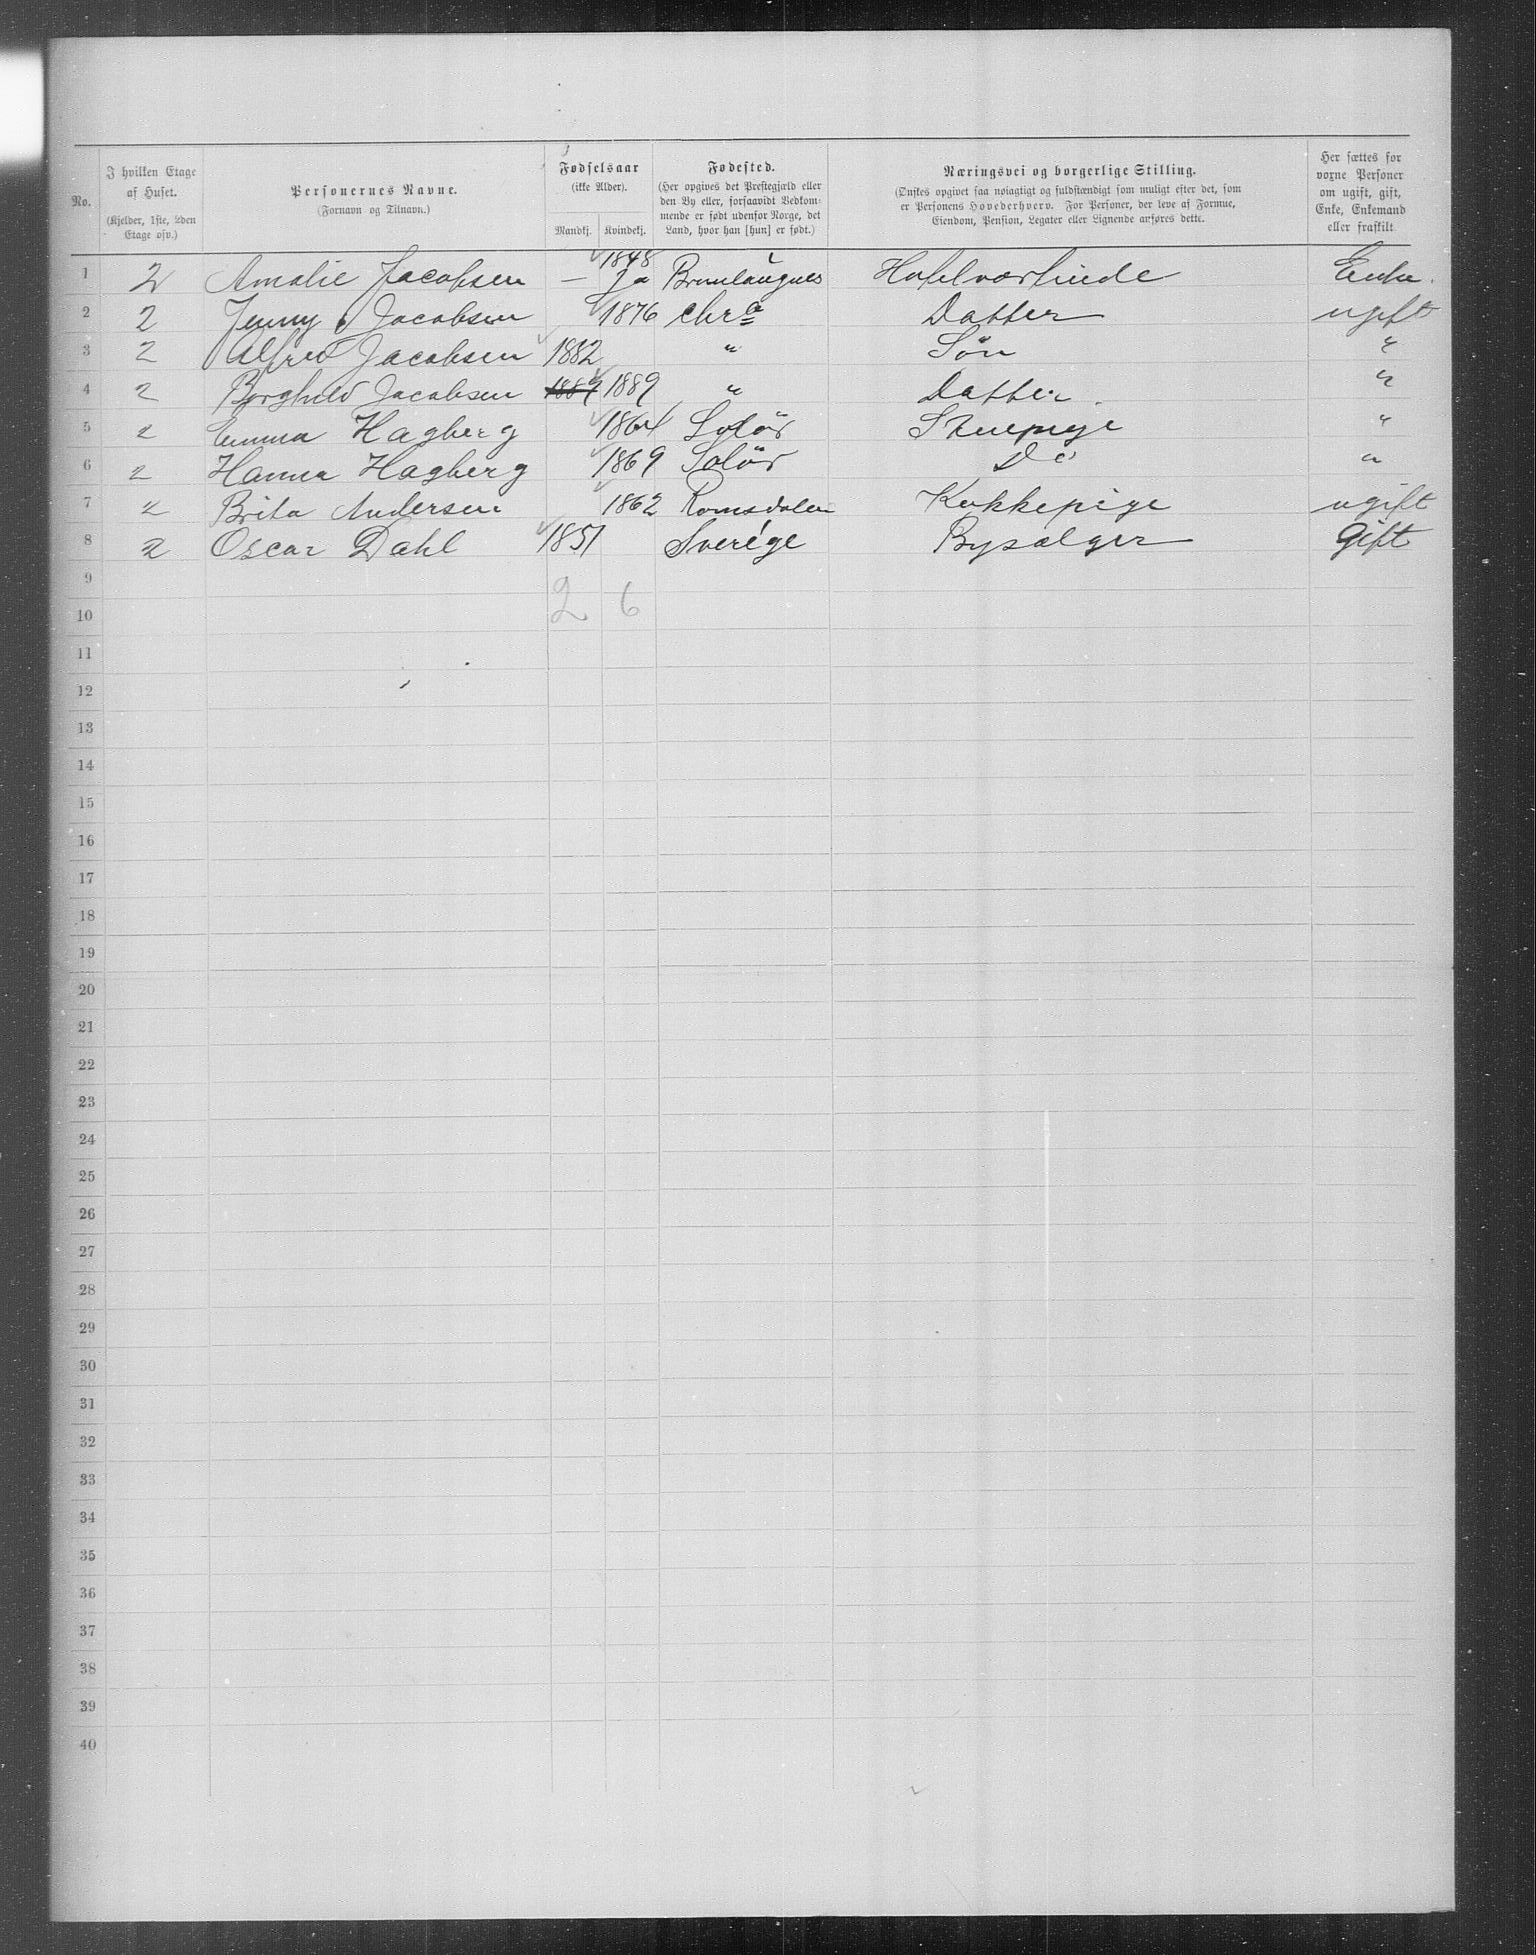 No.
I hvilken Etage af Huset.
(Kjelder, 1ste, 2den Etage osv.)
Personernes Navne.
(Fornavn og Tilnavn.)
Fødselsaar
(ikke Alder).
Mandkj. Kvindekj.
Fødested.
(Her opgives det Prestegjæld eller den By eller, forsaavidt Bedkommende er født udenfor Norge, det Land, hvor han [hun] er født.)
Næringsvei og borgerlige Stilling.
(Ønskes opgivet saa nøiagtigt og fuldstændigt som muligt efter det, som er Personens Hovederhverv. For Personer, der leve af Formue, Eiendom, Pension, Legater eller Lignende anføres dette.
Her sættes for voxne Personer om ugift, gift, Enke, Enkemand eller fraskilt.
1 2 Amalie Jacobsen — 1848 Ja Brunlaugnes Hotelværtinde Enke.
2 2 Jenny Jacobsen 1876 Chr<u>a</u> Datter ugift
3 2 Alfred Jacobsen 1882 " Søn "
4 2 Borghild Jacobsen 1889 " Datter "
5 2 Emma Hagberg 1864 Solör Stuepige "
6 2 Hanna Hagberg 1869 Solör Do "
7 2 Brita Andersen 1862 Romsdalen Kokkepige ugift
8 2 Oscar Dahl 1851 Sverige Bysælger Gift
9
2 6
10
11
12
13
14
15
16
17
18
19
20
21
22
23
24
25
26
27
28
29
30
31
32
33
34
35
36
37
38
39
40